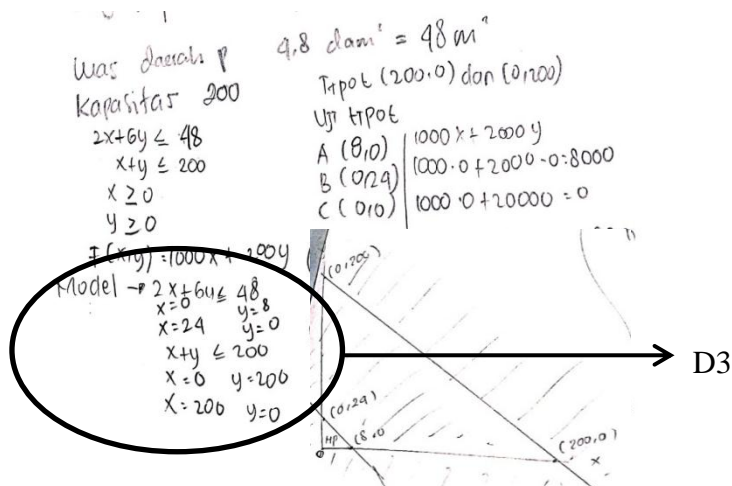 luas daerah P 4,8 dam² = 48 m²
Kapasitas 200
2x+6y ≤ 48
x+y ≤ 200
x ≥ 0
y ≥ 0
F(x,y) = 1000x + 200y
Model → 2x+6y ≤ 48
x=0 y=8
x=24 y=0
x+y ≤ 200
x=0 y=200
x=200 y=0
Titpot (200,0) dan (0,200)
Uji titpot
A (8,0) 1000x + 2000y
B (0,24) 1000·0 + 2000·0=8000
C (0,0) 1000·0 + 20000 = 0
(0,200)
(0,24)
HP (8,0
(200,0)
x
D3